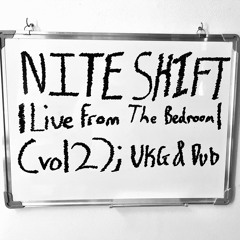 NITE SHIFT
|Live From The Bedroom|
(vol2); UKG & Dub